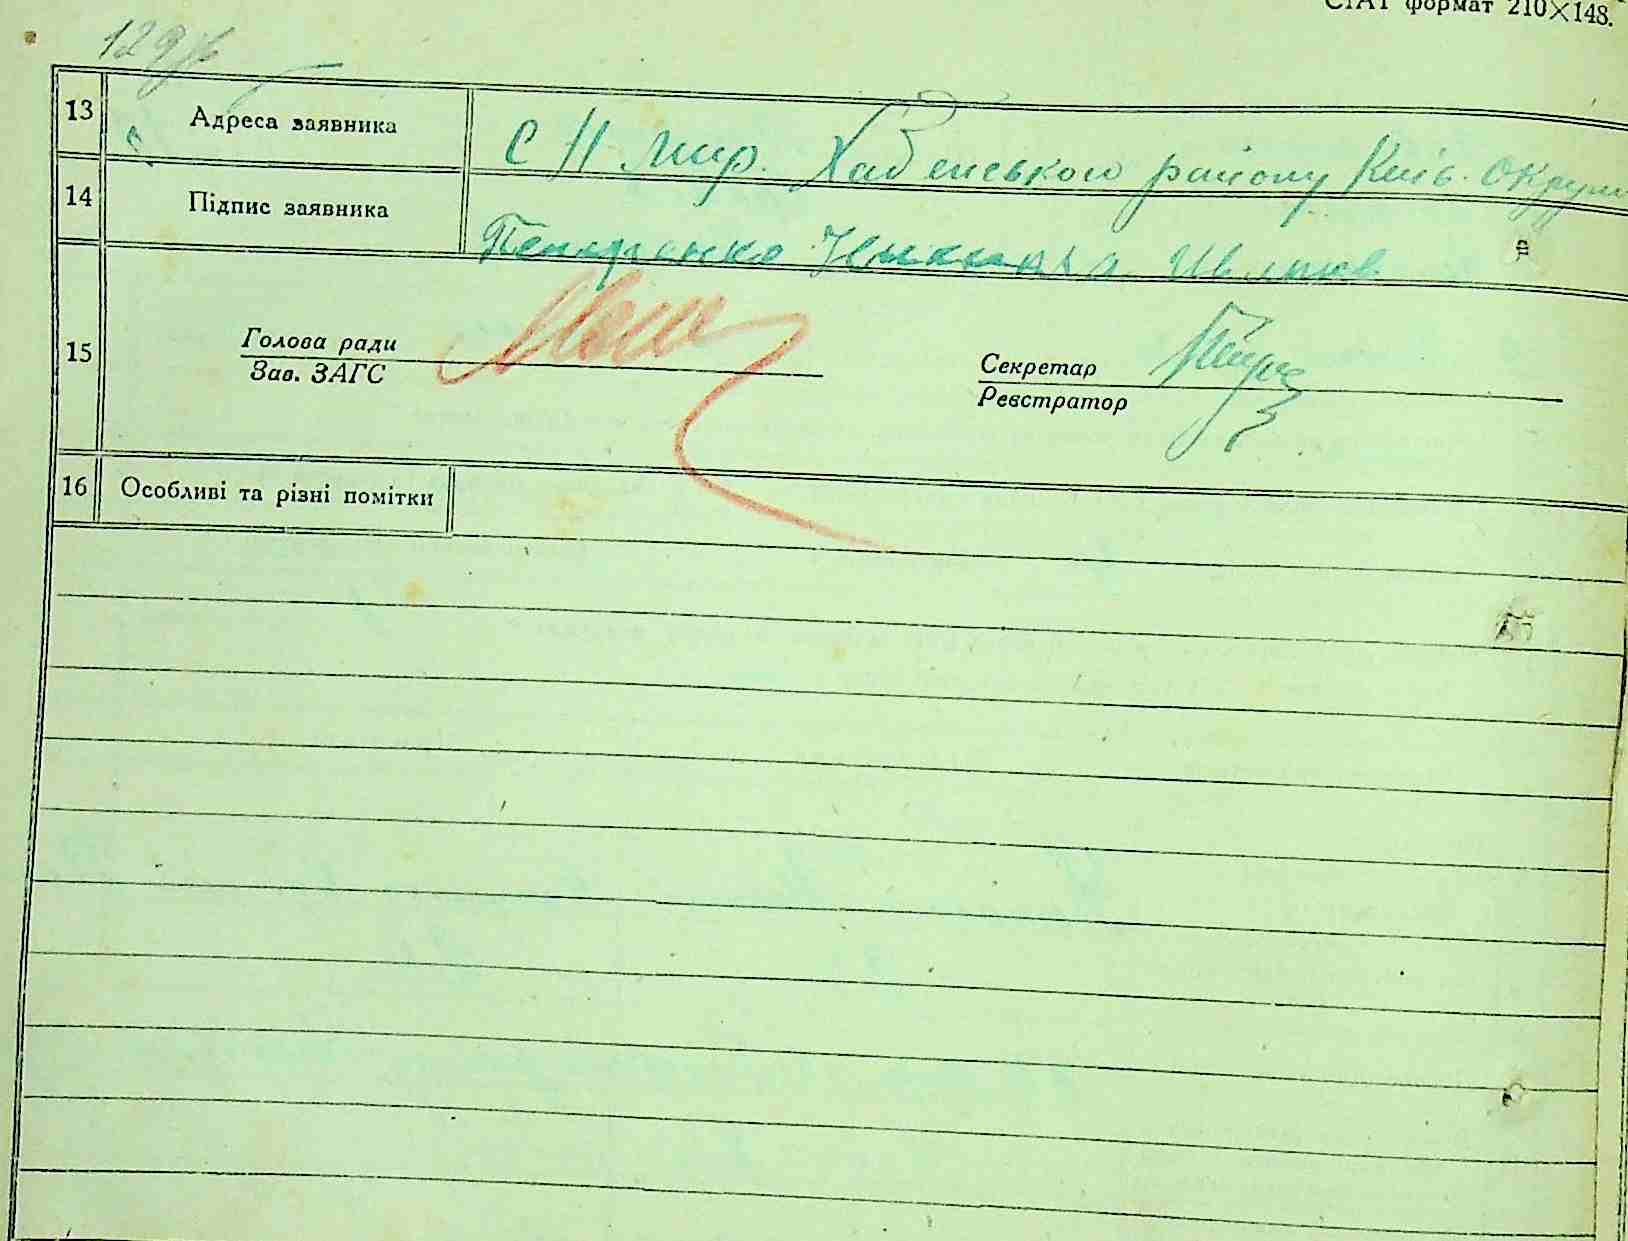 СТАТ формат 210×148.
129
13 Адреса заявника С Н Мир. Хабенського району Київ. округи
14 Підпис заявника Петренко
15 Голова ради Секретар
Зав. ЗАГС Реєстратор
16 Особливі та різні помітки